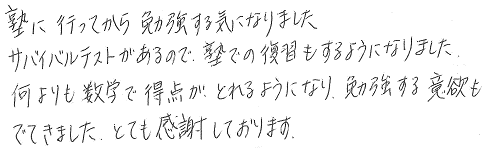 塾に行ってから勉強する気になりました
サバイバルテストがあるので、塾での復習もするようになりました.
何よりも数学で得点がとれるようになり、勉強する意欲も
でてきました. とても感謝しております.